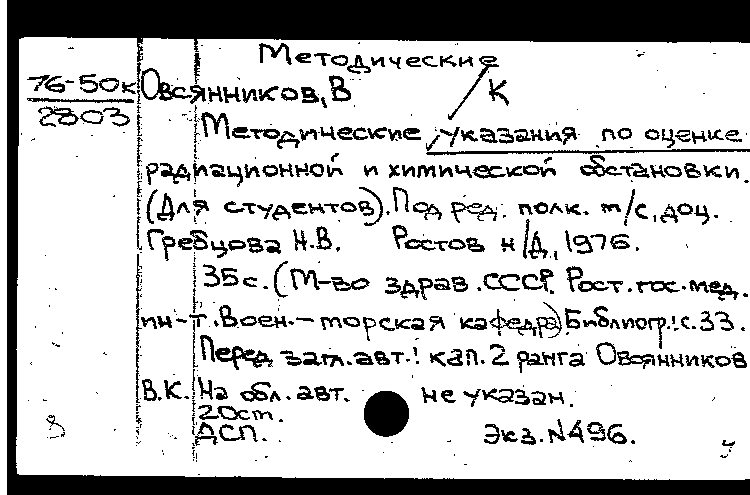 Методические
76-50к Овсянников, В К
2803
Методические указания по оценке
радиационной и химической обстановки.
(Для студентов). Под ред. полк. м/с, доц.
Гребцова Н.В. Ростов н/Д, 1976.
35с. (М-во здрав. СССР. Рост. гос. мед.
ин-т. Воен.-морская кафедра) Библиогр.: с. 33.
Перед загл. авт.: кап. 2 ранга Овсянников
В.К. На обл. авт. не указан.
20см.
ДСП. Экз. №496.